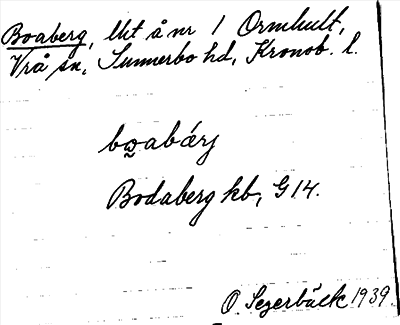 Boaberg, lht å nr 1 Ormhult,
Vrå sn, Sunnerbo hd, Kronob. l.
bo̰abǽrj
Bodaberg kb, G 14.
O. Segerbäck 1939.